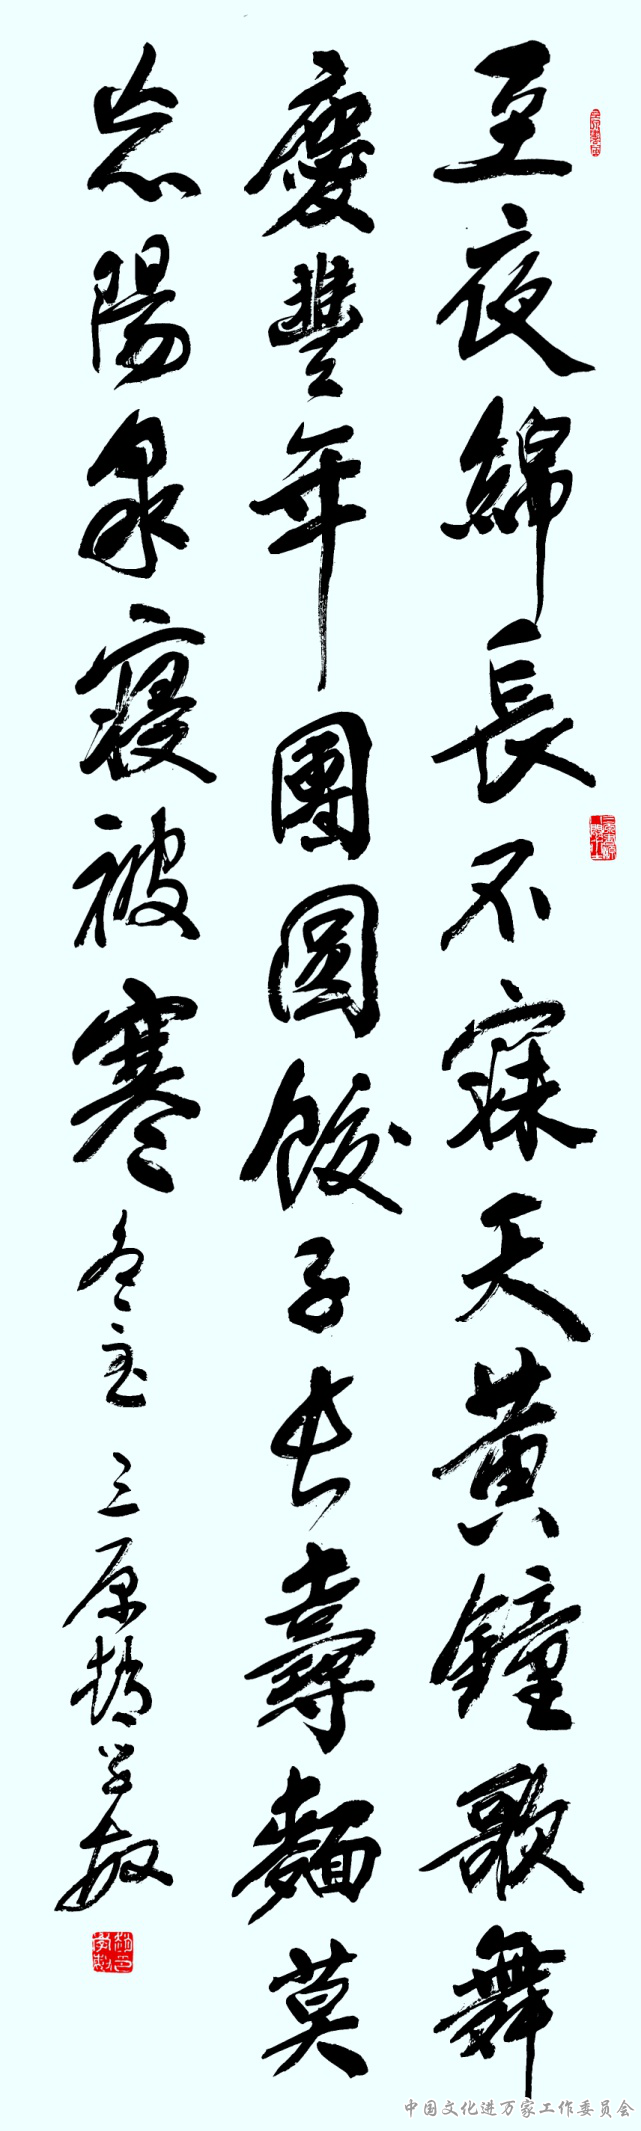 至夜綿長不寐天黄鐘歌舞
慶豐年團圆餃子长壽麵莫
忘陽泉寝被寒
冬至 三原趙学敏
中国文化进万家工作委员会